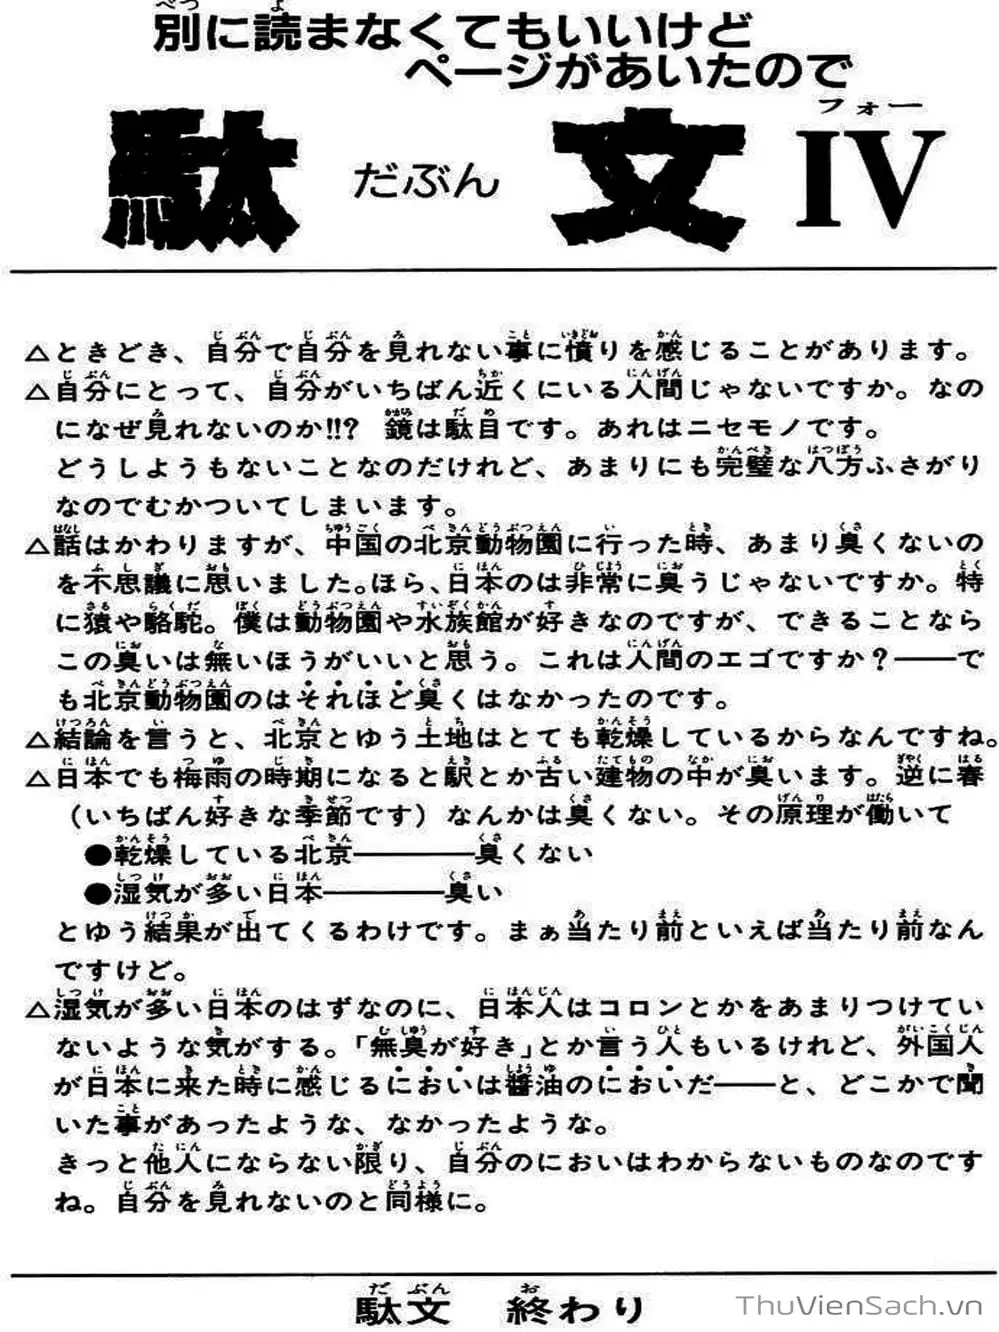 別に読まなくてもいいけど
ページがあいたので
駄文IV
だぶん
フォー
△ときどき、自分で自分を見れない事に憤りを感じることがあります。
△自分にとって、自分がいちばん近くにいる人間じゃないですか。なの
になぜ見れないのか!!? 鏡は駄目です。あれはニセモノです。
どうしようもないことなのだけれど、あまりにも完璧な八方ふさがり
なのでむかついてしまいます。
△話はかわりますが、中国の北京動物園に行った時、あまり臭くないの
を不思議に思いました。ほら、日本のは非常に臭うじゃないですか。特
に猿や駱駝。僕は動物園や水族館が好きなのですが、できることなら
この臭いは無いほうがいいと思う。これは人間のエゴですか？――で
も北京動物園のはそれほど臭くはなかったのです。
△結論を言うと、北京とゆう土地はとても乾燥しているからなんですね。
△日本でも梅雨の時期になると駅とか古い建物の中が臭います。逆に春
（いちばん好きな季節です）なんかは臭くない。その原理が働いて
●乾燥している北京――――臭くない
●湿気が多い日本――――臭い
とゆう結果が出てくるわけです。まぁ当たり前といえば当たり前なん
ですけど。
△湿気が多い日本のはずなのに、日本人はコロンとかをあまりつけてい
ないような気がする。「無臭が好き」とか言う人もいるけれど、外国人
が日本に来た時に感じるにおいは醤油のにおいだ――と、どこかで聞
いた事があったような、なかったような。
きっと他人にならない限り、自分のにおいはわからないものなのです
ね。自分を見れないのと同様に。
駄文 終わり
ThuVienSach.vn